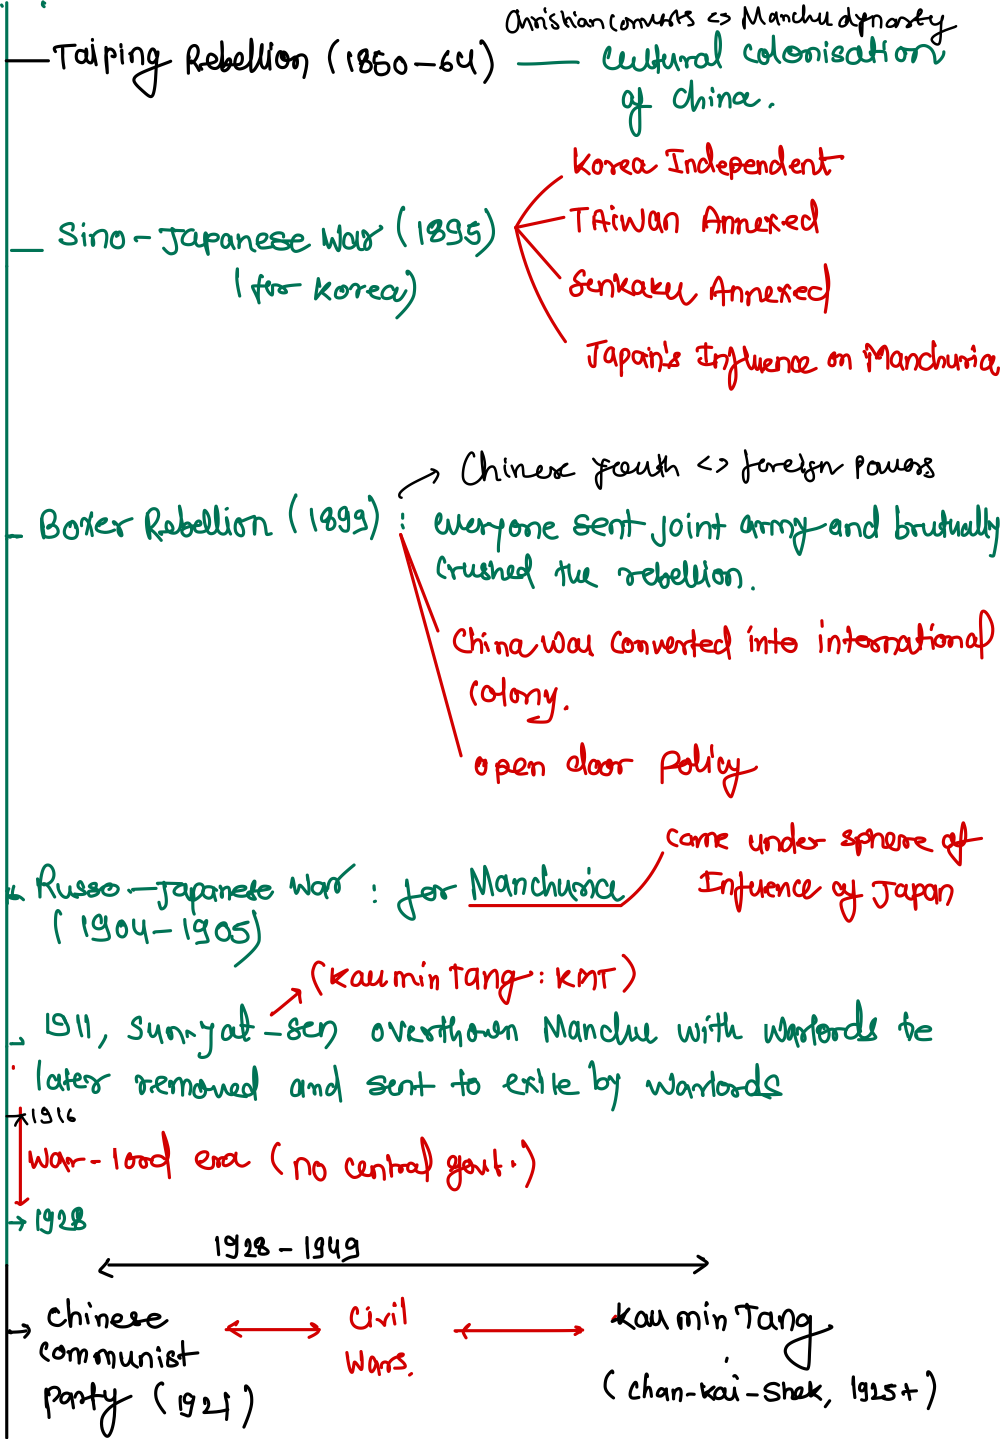 Christian converts <> Manchu dynasty
Taiping Rebellion (1850-64) — cultural colonisation
of China.
Korea Independent
Sino-Japanese War (1895)
(for Korea)
TAiwan Annexed
Senkaku Annexed
Japan's Influence on Manchuria
Chinese youth <> foreign powers
Boxer Rebellion (1899) : everyone sent joint army and brutually
crushed the rebellion.
China was converted into international
colony.
open door policy
came under sphere of
Influence of Japan
Russo-Japanese War : for Manchuria
(1904-1905)
(Kau min Tang : KMT)
1911, Sun-yat-sen overthown Manchu with warlords be
later removed and sent to exile by warlords
1916
War-lord era (no central govt.)
1928
1928 - 1949
Chinese
communist
party (1921)
Civil
Wars.
Kau min Tang
(Chan-kai-Shek, 1925+)